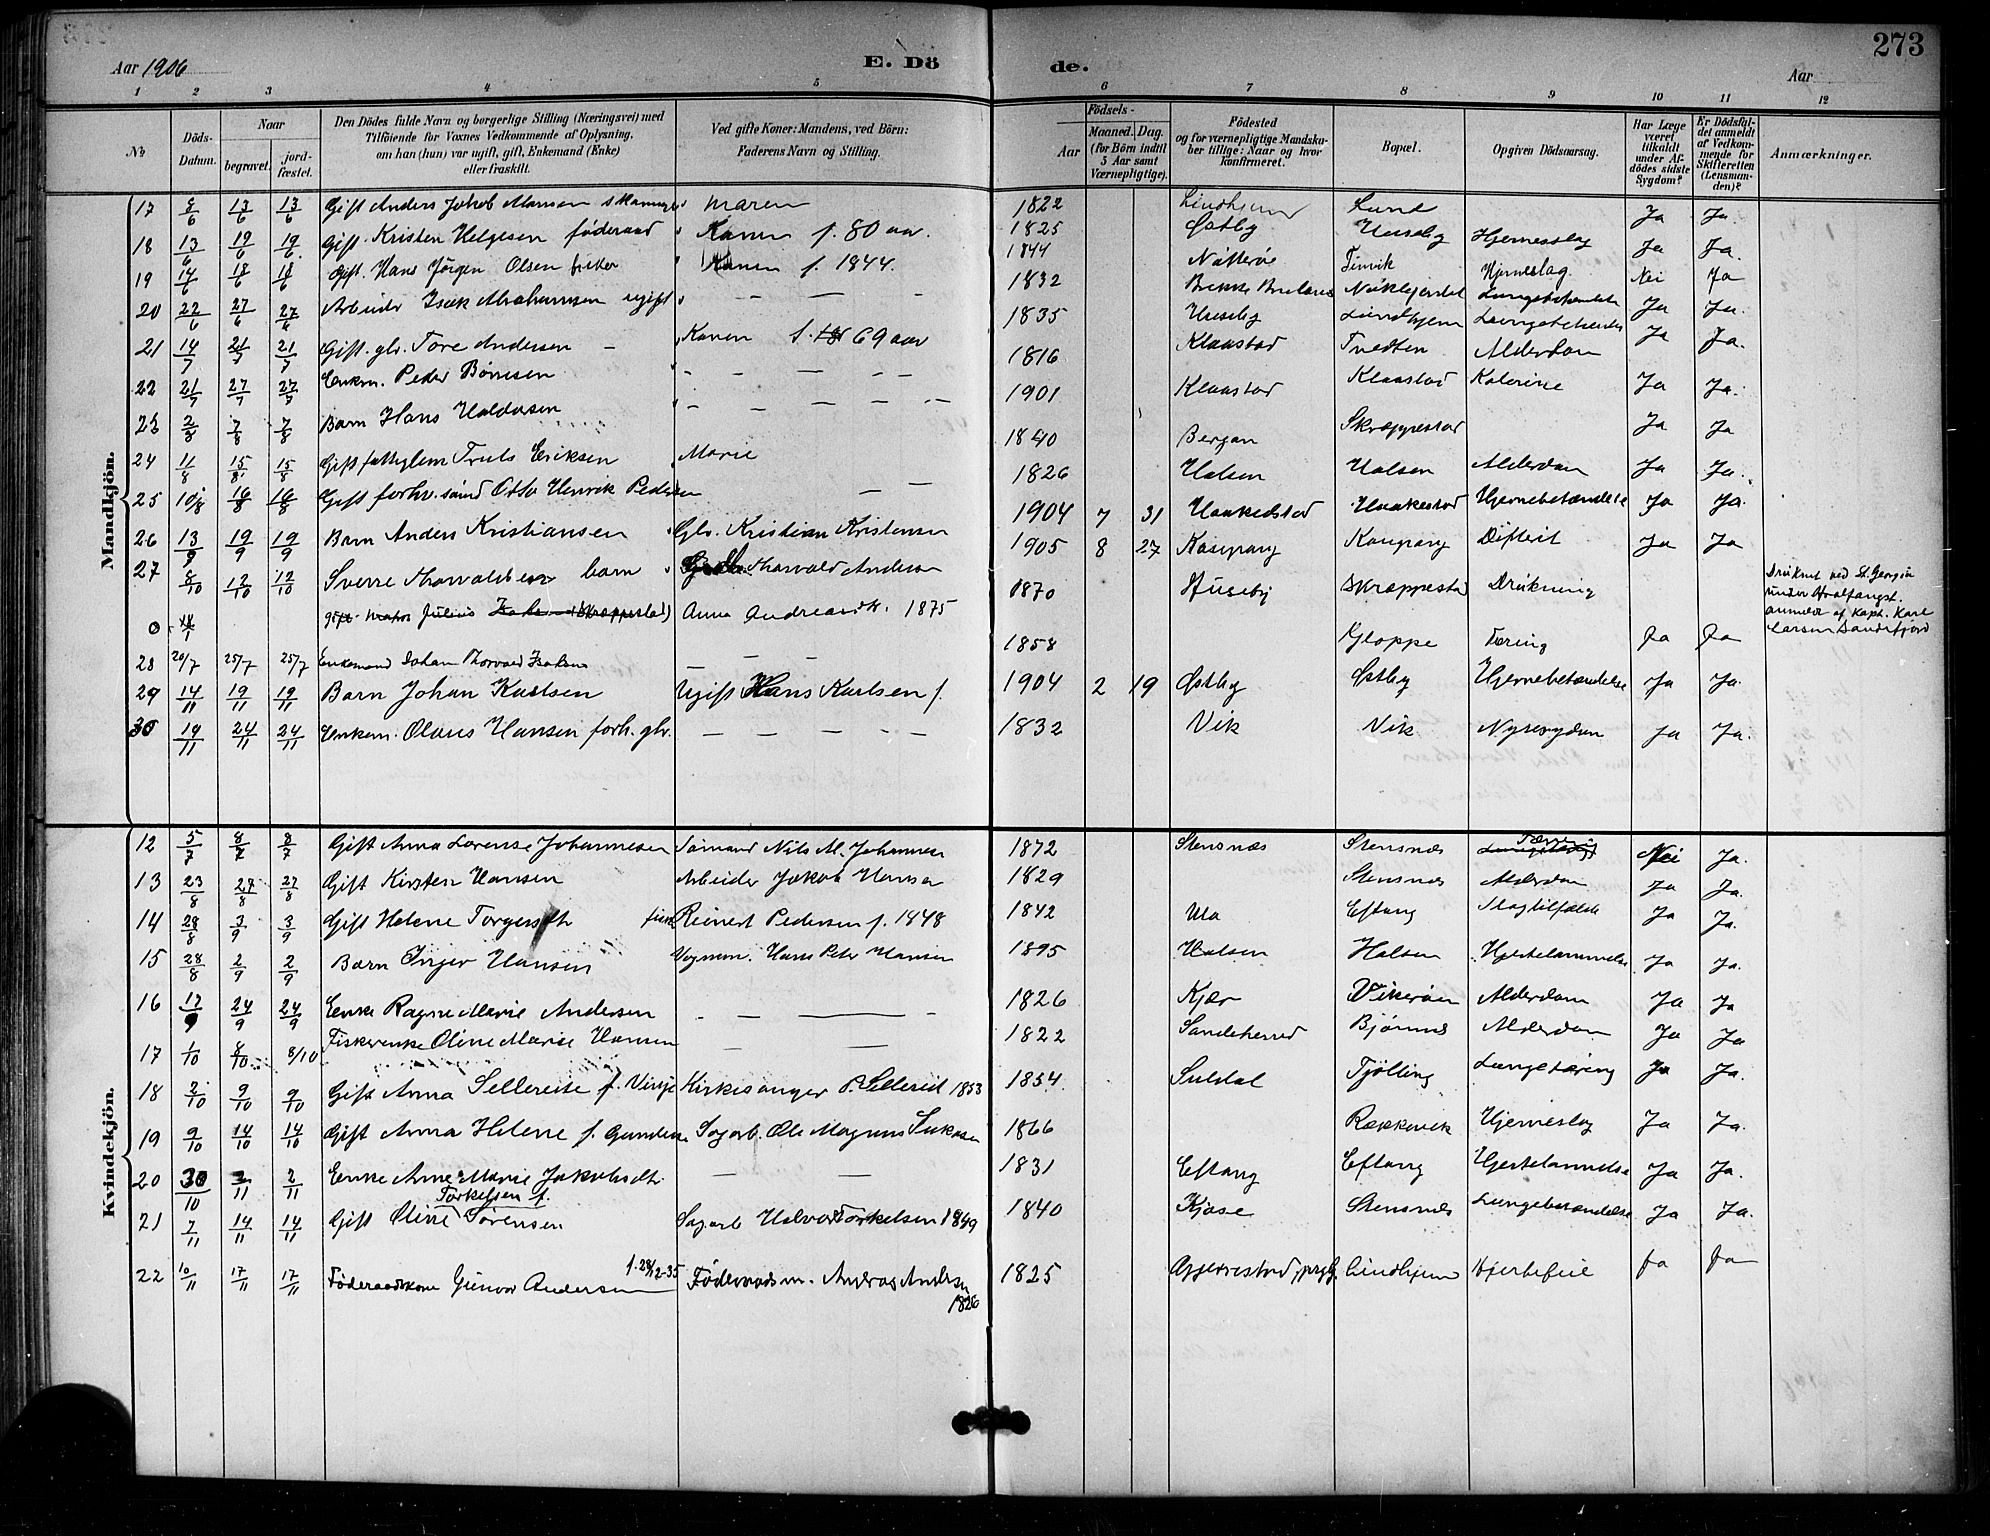 273
Aar 1906
E. Dö
de.
Aar
1 2 3 4 5 6 7 8 9 10 11 12
No
Döds-Datum.
Naar
begravet.
jord-fæstet.
Den Dödes fulde Navn og borgerlige Stilling (Næringsvei) med
Tilföiende for Voxnes Vedkommende af Oplysning,
om han (hun) var ugift, gift, Enkemand (Enke)
eller fraskilt.
Ved gifte Koner: Mandens, ved Börn:
Faderens Navn og Stilling.
Födsels-
Aar
Maaned. Dag.
(for Börn indtil
5 Aar samt
Værnepligtige).
Födested
og for værnepligtige Mandska-
ber tillige: Naar og hvor
konfirmeret.
Bopæl.
Opgiven Dödsaarsag.
Har Læge
været
tilkaldt
under Af-
dödes sidste
Sygdom?
Er Dödsfal-
det anmeldt
af Vedkom-
mende for
Skifteretten
(Lensman-
den)?
Anmærkninger.
Mandkjön.
17 8/6 13/6 13/6 Gift Anders Jakob Hansen maren 1822 Lund Ja Ja
18 13/6 19/6 19/6 Gift. Kristen Helgesen föderaad Konen f. 80 aar. 1825 Østby Huseby Hjerneslag Ja Ja.
19 14/6 18/6 18/6 Gift. Hans Jörgen Olsen fisker Konen f. 1844. 1844 Nötterøe Hjerneslag Nei Ja
20 22/6 27/6 27/6 Arbeider Isak Abrahamsen ugift — — — 1832 Lungebetændelse Ja Ja.
21 14/7 21/7 21/7 Gift. gbr. Tore Andersen — Konen f. 69 aar 1835 Huseby Lindhjem Lungebetændelse Ja Ja.
22 21/7 27/7 27/7 Enkm. Peder Børresen — — — — — 1816 Klaastad Tvedten Alderdom
23 2/8 7/8 7/8 Barn Hans Haldorsen — — — — — 1901 Klaastad Klaastad Kolerine Ja Ja.
24 11/8 15/8 15/8 Gift fattiglem Truls Eriksen Marie 1840 Bergan Skræppestad Ja Ja
25 10/8 16/8 16/8 Gift forhv. sømd Otto Henrik Pedersen — — 1826 Halsen Halsen Alderdom Ja Ja.
26 13/9 19/9 19/9 Barn Anders Kristiansen Gbr. Kristian Kristensen 1904 7 31 Haakestad Haakestad Hjernebetændelse Ja Ja.
27 8/10 12/10 12/10 Sverre Thorvaldsen barn Thorvald Andersen 1905 8 27 Kaupang Kaupang Difterit Ja Ja
0 18/1 gift. matros Julius Isaksen (Skræppestad) Anna Andreasdtr. 1875 1870 Huseby Skræppestad Drukning
Druknet ved St. Georgia
under Hvalfangst.
anmeldt af Kapt. Karl
Larsen Sandefjord
28 20/7 25/7 25/7 Enkemand Johan Thorvald Isaksen — — — 1858 Gloppe Tæring Ja Ja
29 14/11 19/11 19/11 Barn Johan Karlsen Ugift Hans Karlsen f. 1904 2 19 Østby Østby Hjernebetændelse Ja Ja.
30 19/11 24/11 24/11 Enkem. Olaus Hansen forh. gbr. — — — — — 1832 Vik Vik Nyresygdom Ja Ja.
Kvindekjön.
12 5/7 8/7 8/7 Gift Anna Lorense Johannesen Sömand Nils M. Johannesen 1872 Stensnæs Stensnæs Tæring Nei Ja.
13 23/8 27/8 27/8 Gift Kirsten Hansen Arbeider Jakob Hansen 1829 Stensnæs Alderdom Ja Ja.
14 28/8 3/9 3/9 Gift Helene Torgersdtr Reinert Pedersen f. 1848 1842 Ula Eftang Slagtilfælde Ja Ja.
15 28/8 2/9 2/9 Barn Inger Hansen Vognm. Hans Peter Hansen 1895 Halsen Halsen Hjertelammelse Ja Ja.
16 17/9 24/9 24/9 Enke Ragne Marie Andersen — — — — 1826 Kjær Vikerøen Alderdom Ja Ja
17 1/10 8/10 8/10 Fiskerenke Oline Marie Hansen — — 1822 Sandeherred Bjønnes Alderdom Ja Ja
18 2/10 9/10 9/10 Gift Anna Sellereite f. Vinje Kirkesanger P. Sellereit 1853 1854 Suldal Tjölling Lungetæring Ja Ja.
19 9/10 14/10 14/10 Gift Anna Helene f. Gundersen Sagarb. Ole Magnus Isaksen 1866 Rækkevik Hjerneslag Ja Ja.
20 30/10 2/11 2/11 Enke Anne Marie Jakobsdtr. — — 1831 Eftang Eftang Hjertelammelse Ja Ja.
21 7/11 14/11 14/11 Gift Oline Torkelsen f. Sørensen Sagarb Halvor Torkelsen 1849 1840 Kjose Stensnæs Lungebetændelse Ja Ja.
22 10/11 17/11 17/11 Föderaadskone Gunvor Andersen f. 28/12-35 Föderaadsm. Andreas Andersen 1826 1825 Aggerrestad, Lindhjem Hjertefeil Ja Ja